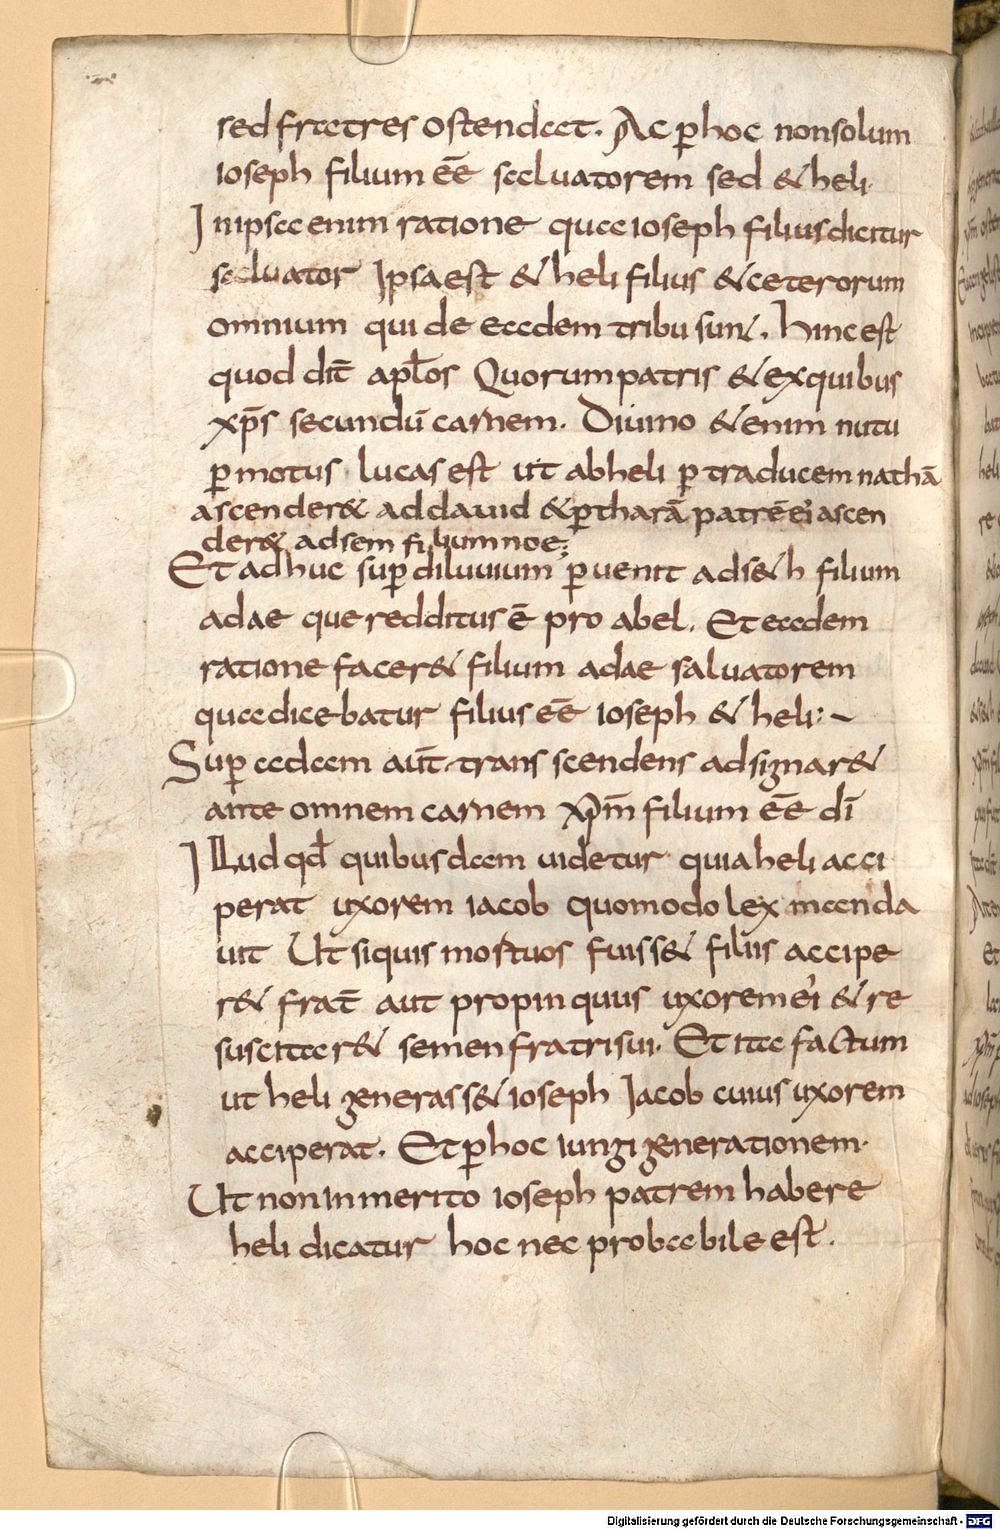 sed fratres ostendat. Ac p̄ hoc non solum
ioseph filium eē̄ saluatorem sed & heli.
In ipsa enim ratione qua ioseph filius dicitur
saluator Ipsa est & heli filius & ceterorum
omnium qui de eadem tribu sunt. hinc est
quod dit̄ apl̄os Quorum patris & ex quibus
xp̄s secundū carnem. Diuino & enim nutu
p̄motus lucas est ut ab heli p̄ traducem nathā
ascender& ad dauid & p̄ tharā patrē ei ascen
der& ad sem filium noe;
Et adhuc sup̄ diluuium p̄uenit ad s&h filium
adae que redditus ē pro abel. Et eadem
ratione facer& filium adae saluatorem
qua dicebatur filius eē̄ ioseph & heli:~
Sup̄ eadem aut̄ transscendens adsignar&
ante omnem carnem xp̄m filium eē̄ dī
ILLud qd̄ quibusdam uidetur quia heli acci
perat uxorem iacob quomodo lex manda
uit Ut si quis mortuos fuiss& filiis accipe
r& frat̄ aut propinquus uxorem ei & re
suscitar& semen fratri sui. Et ita factum
ut heli generass& ioseph Iacob cuius uxorem
acciperat. Et p̄ hoc iungi generationem.
Ut non inmerito ioseph patrem habere
heli dicatur hoc nec probabile est.
Digitalisierung gefördert durch die Deutsche Forschungsgemeinschaft - DFG